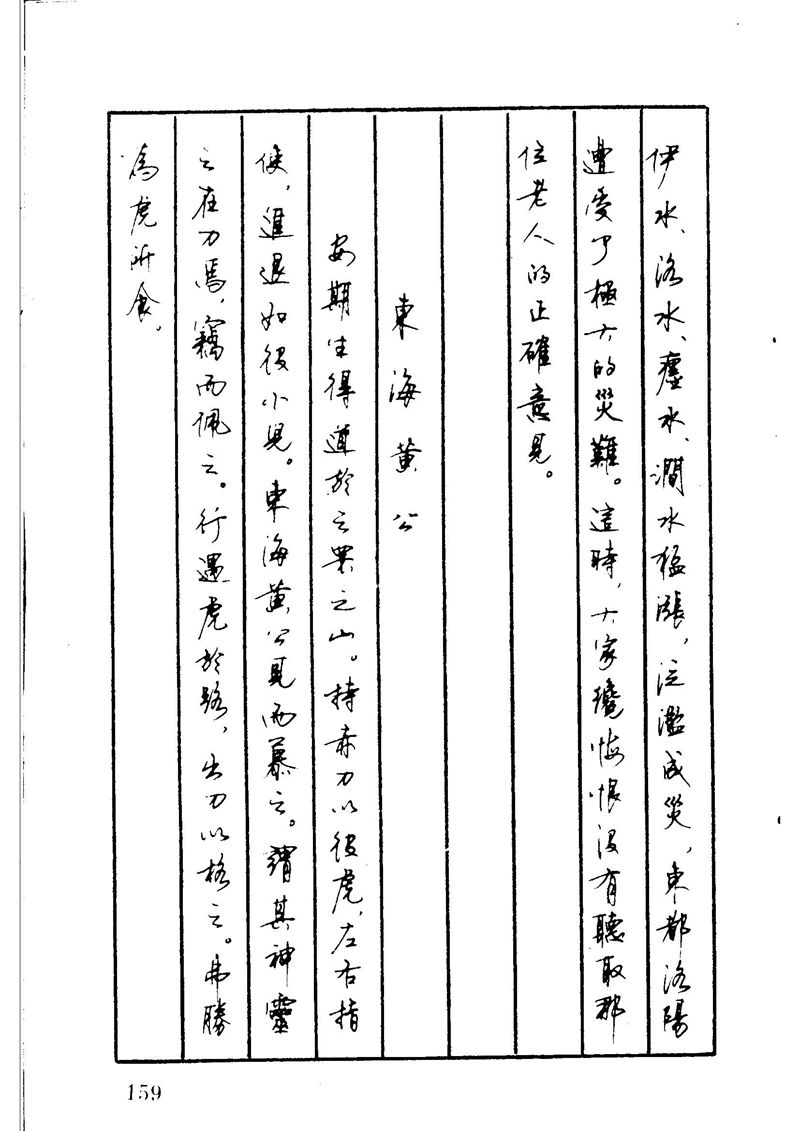 伊水、洛水、瀍水、澗水猛漲，泛濫成災，東都洛陽
遭受了極大的災難。這時，大家纔悔恨没有聽取那
位老人的正確意見。
東海黄公
安期生得道於之罘之山。持赤刀以役虎，左右指
使，進退如役小兒。東海黄公見而慕之。謂其神靈
之在刀焉，竊而佩之。行遇虎於路，出刀以格之。弗勝
為虎所食。
159